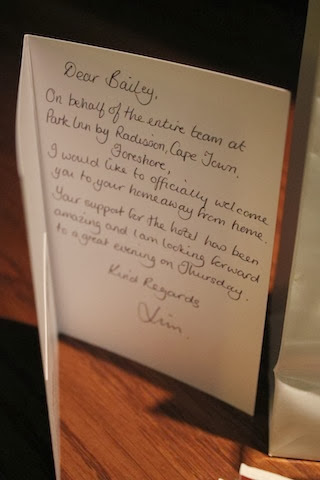 Dear Bailey,
On behalf of the entire team at
Park Inn by Radisson, Cape Town,
Foreshore,
I would like to officially welcome
you to your homeaway from home.
Your support for the hotel has been
amazing and I am looking forward
to a great evening on Thursday.
Kind Regards